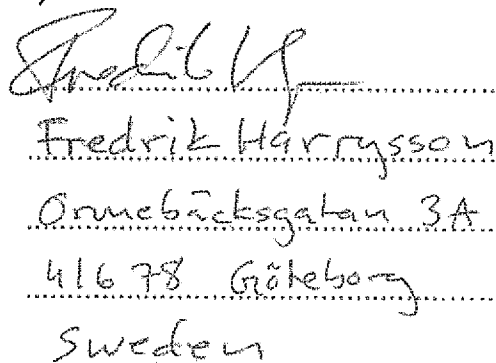 Fredrik Harrysson
Ornnebäcksgatan 3A
416 78 Göteborg
Sweden